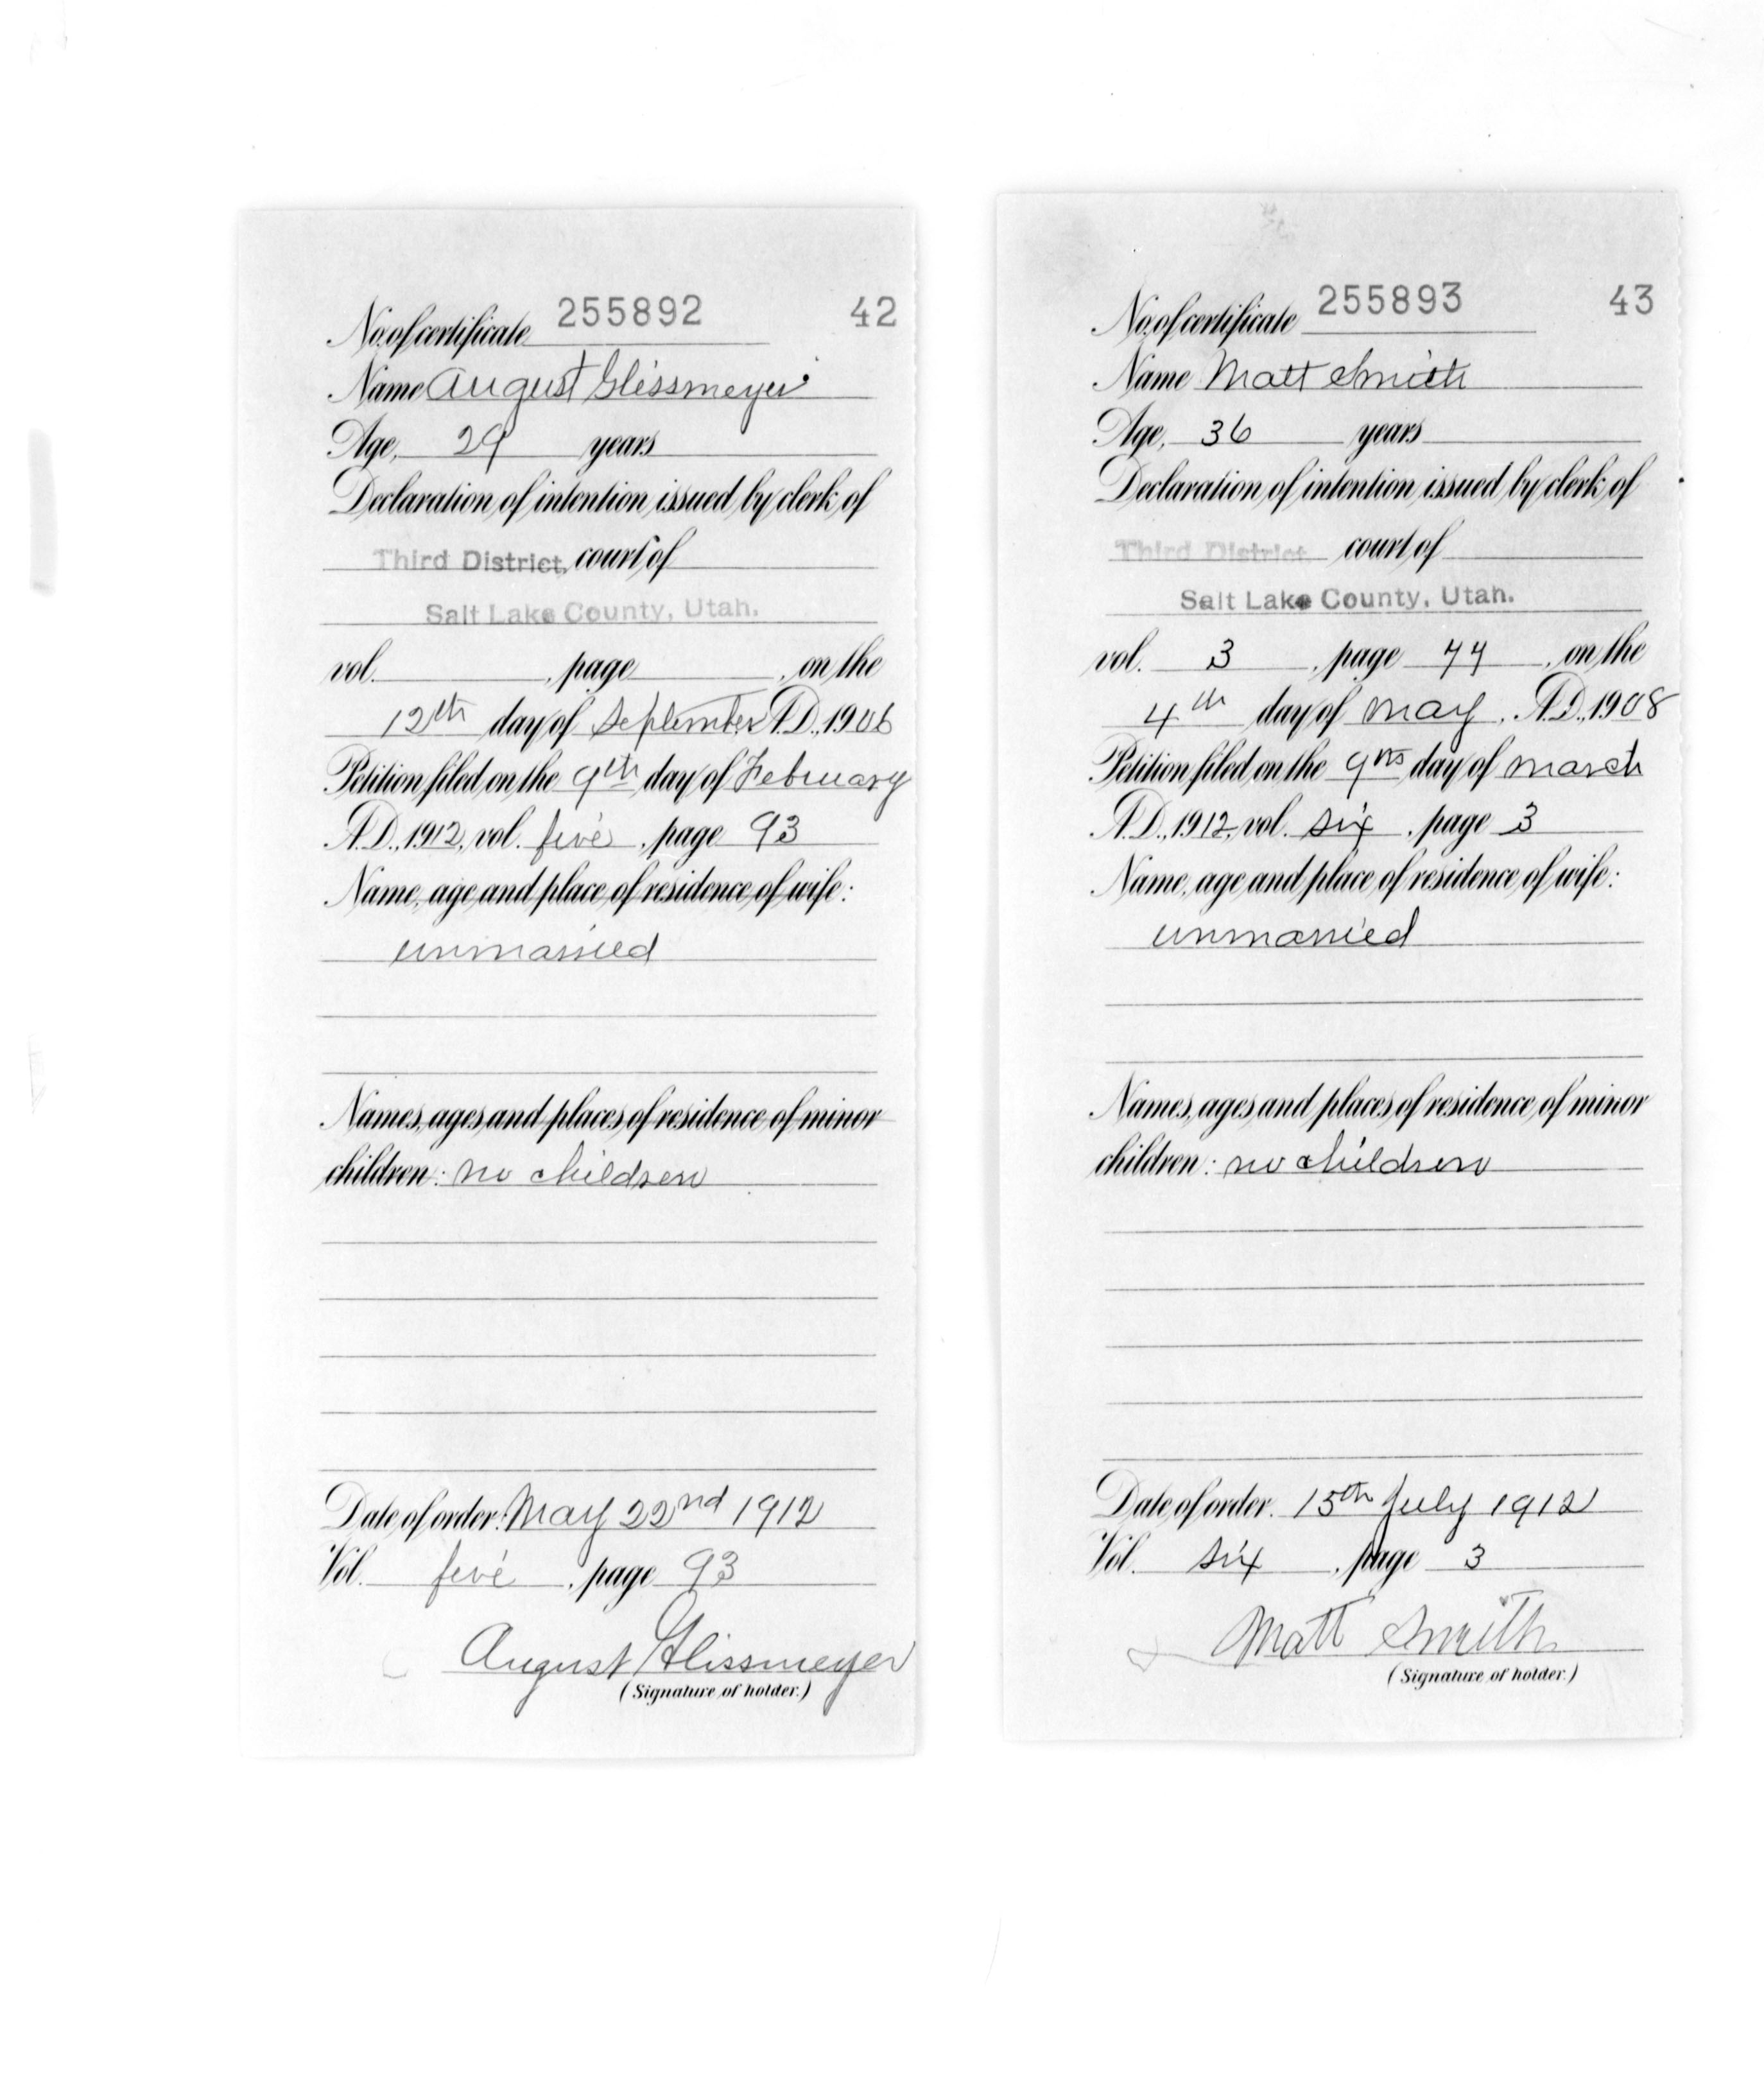 No. of certificate 255892 42
Name August Glissmeyer
Age, 29 years
Declaration of intention issued by clerk of
Third District court of
Salt Lake County, Utah.
vol. , page , on the
12th day of September A.D., 1906
Petition filed on the 9th day of February
A.D., 1912, vol. five, page 93
Name, age and place of residence of wife:
unmarried
Names, ages and places of residence of minor
children: no children
Date of order: May 22nd 1912
Vol. five, page 93
August Glissmeyer
(Signature of holder.)
No. of certificate 255893 43
Name Matt Smith
Age, 36 years
Declaration of intention issued by clerk of
Third District court of
Salt Lake County, Utah.
vol. 3, page 44, on the
4th day of May, A.D., 1908
Petition filed on the 9th day of March
A.D., 1912, vol. six, page 3
Name, age and place of residence of wife:
unmarried
Names, ages and places of residence of minor
children: no children
Date of order. 15th July 1912
Vol. six, page 3
Matt Smith
(Signature of holder.)